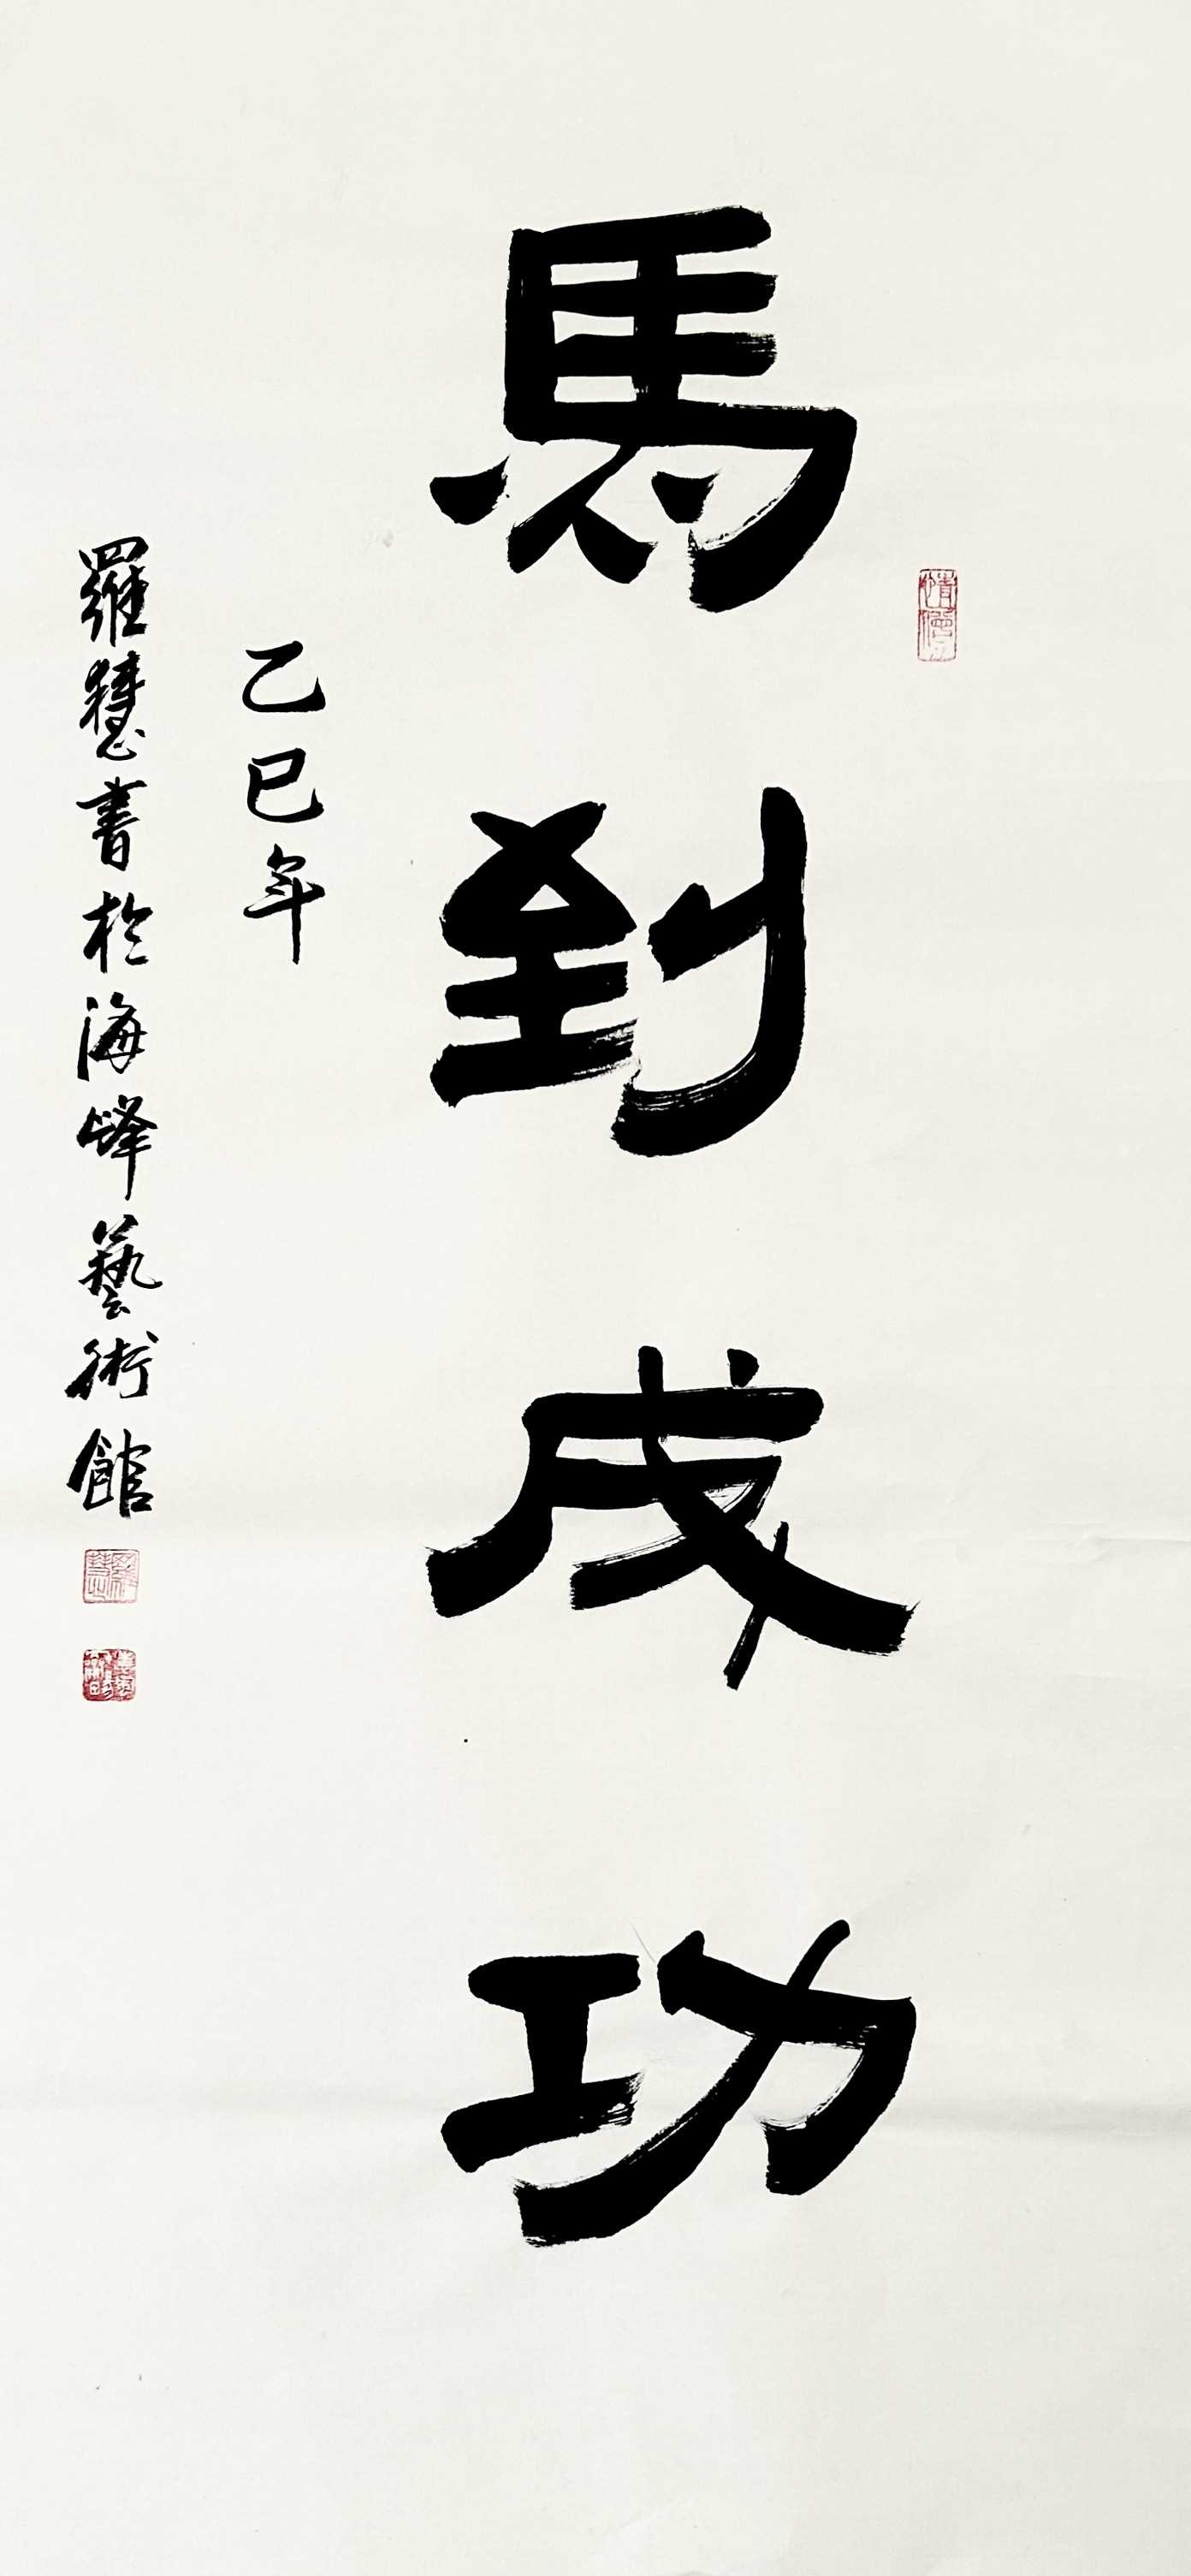 馬到成功
乙巳年
羅慧書於海峰藝術館